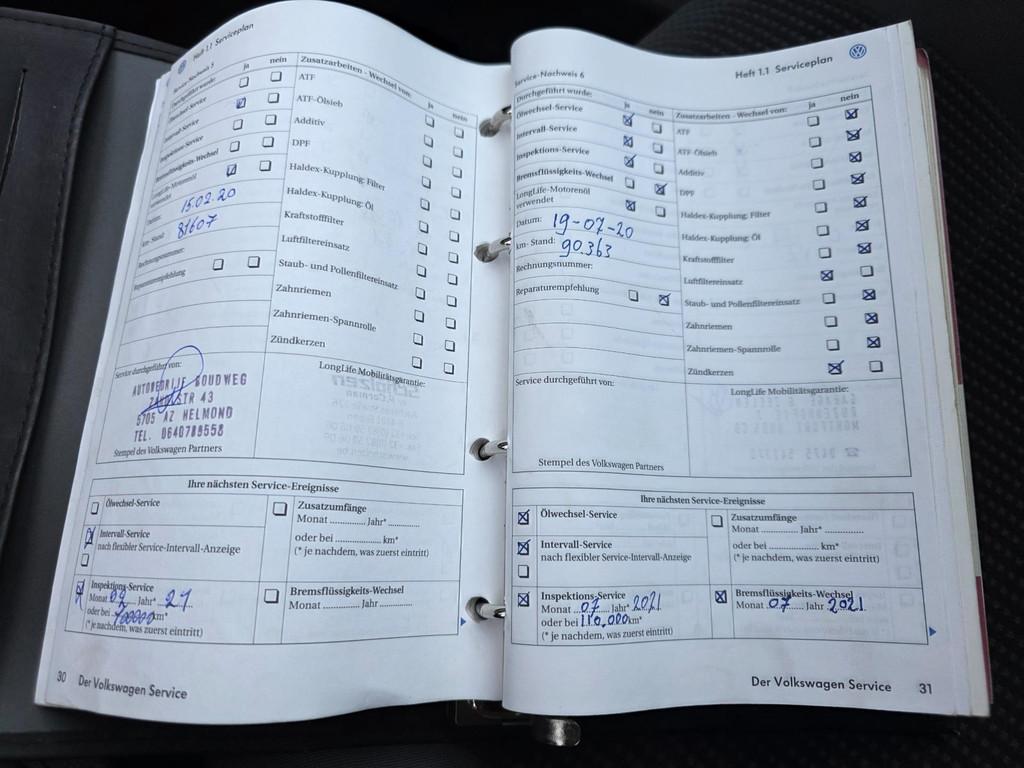 Heft 1.1 Serviceplan
Service-Nachweis 5
Durchgeführt wurde: ja nein
Ölwechsel-Service
Intervall-Service
Inspektions-Service
Bremsflüssigkeits-Wechsel
LongLife-Motorenöl
verwendet
Datum: 15.02.20
km- Stand: 81607
Rechnungsnummer:
Reparaturempfehlung
Zusatzarbeiten - Wechsel von: ja nein
ATF
ATF-Ölsieb
Additiv
DPF
Haldex-Kupplung: Filter
Haldex-Kupplung: Öl
Kraftstofffilter
Luftfiltereinsatz
Staub- und Pollenfiltereinsatz
Zahnriemen
Zahnriemen-Spannrolle
Zündkerzen
Service durchgeführt von:
AUTOBEDRIJF GOUDWEG
STR 43
5705 AZ HELMOND
TEL. 0640788558
Stempel des Volkswagen Partners
LongLife Mobilitätsgarantie:
Ihre nächsten Service-Ereignisse
Ölwechsel-Service
Intervall-Service
nach flexibler Service-Intervall-Anzeige
Inspektions-Service
Monat 02 Jahr* 21
oder bei 100000 km*
(* je nachdem, was zuerst eintritt)
Zusatzumfänge
Monat ............ Jahr* ............
oder bei ................ km*
(* je nachdem, was zuerst eintritt)
Bremsflüssigkeits-Wechsel
Monat ............ Jahr ............
30 Der Volkswagen Service
Heft 1.1 Serviceplan
Service-Nachweis 6
Durchgeführt wurde: ja nein
Ölwechsel-Service
Intervall-Service
Inspektions-Service
Bremsflüssigkeits-Wechsel
LongLife-Motorenöl
verwendet
Datum: 19-07-20
km- Stand: 90.363
Rechnungsnummer:
Reparaturempfehlung
Zusatzarbeiten - Wechsel von: ja nein
ATF
ATF-Ölsieb
Additiv
DPF
Haldex-Kupplung: Filter
Haldex-Kupplung: Öl
Kraftstofffilter
Luftfiltereinsatz
Staub- und Pollenfiltereinsatz
Zahnriemen
Zahnriemen-Spannrolle
Zündkerzen
Service durchgeführt von:
Stempel des Volkswagen Partners
LongLife Mobilitätsgarantie:
Ihre nächsten Service-Ereignisse
Ölwechsel-Service
Intervall-Service
nach flexibler Service-Intervall-Anzeige
Inspektions-Service
Monat 07 Jahr* 2021
oder bei 110.000 km*
(* je nachdem, was zuerst eintritt)
Zusatzumfänge
Monat ............ Jahr* ............
oder bei ................ km*
(* je nachdem, was zuerst eintritt)
Bremsflüssigkeits-Wechsel
Monat 07 Jahr 2021
Der Volkswagen Service 31